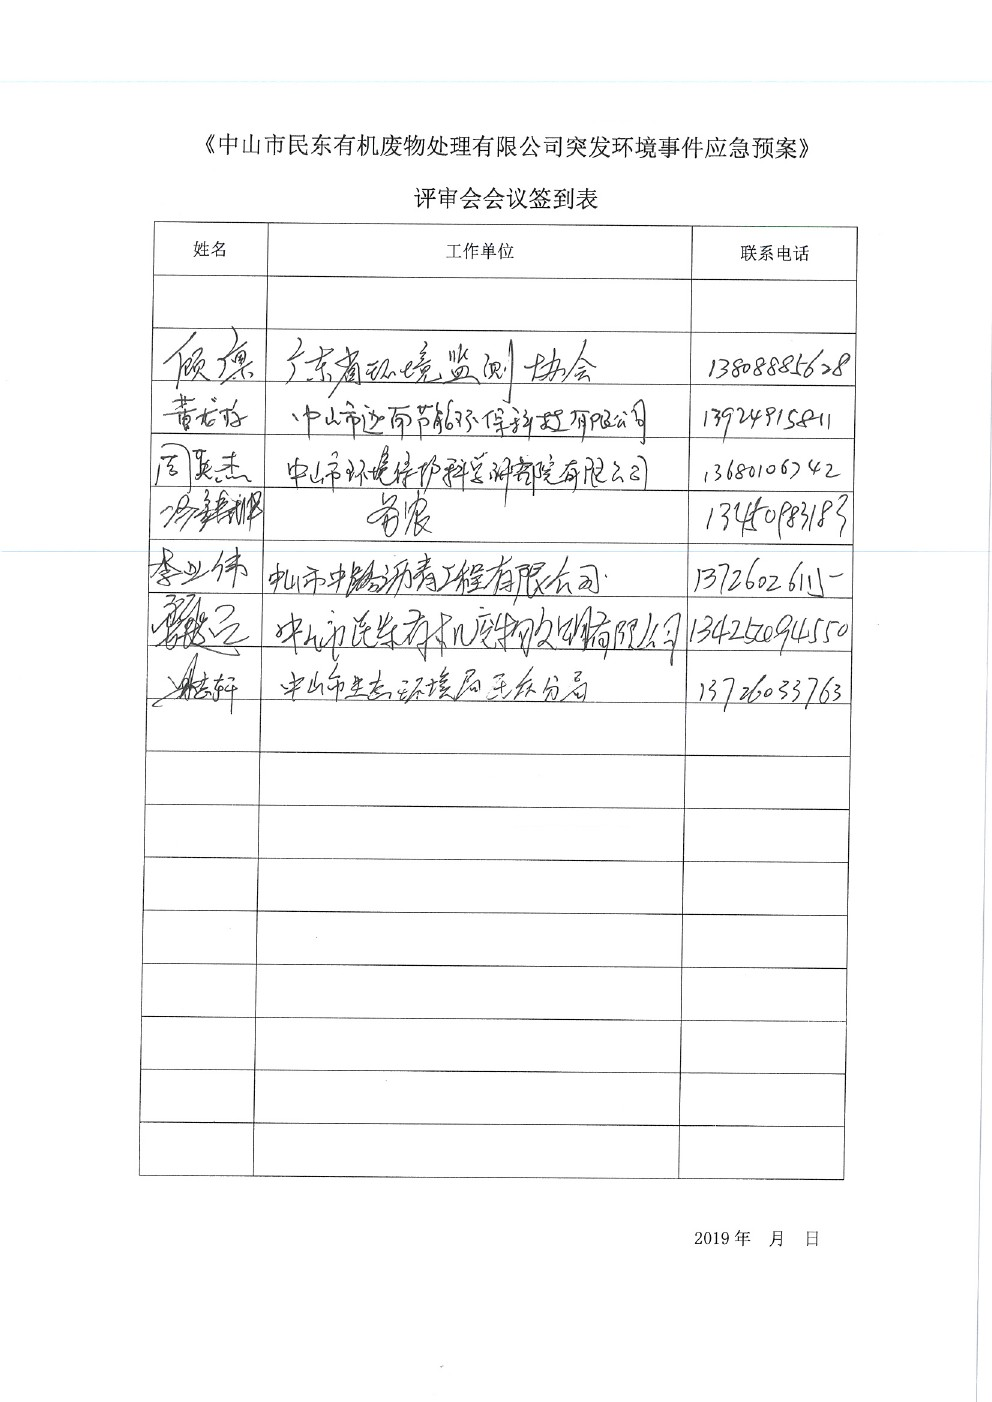 《中山市民东有机废物处理有限公司突发环境事件应急预案》
评审会会议签到表
姓名 工作单位 联系电话
顾 广东省环境监测协会 13808885628
黄 中山市 节能环保科技有限公司 13924915811
周英杰 中山市环境保护科学研究院有限公司 13680106742
务农 13450983183
李业伟 中山市中 沥青工程有限公司 1372602611
中山市民东有机废物处理有限公司 13425094550
志轩 中山市生态环境局 分局 13726033763
2019 年 月 日